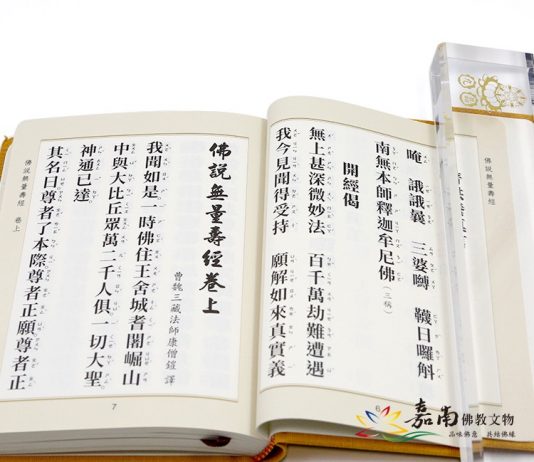 佛說無量壽經
唵　誐誐曩　三婆嚩　韈日囉斛
南無本師釋迦牟尼佛(三稱)
開經偈
無上甚深微妙法　百千萬劫難遭遇
我今見聞得受持　願解如來真實義
6
佛說無量壽經卷上
曹魏三藏法師康僧鎧 譯
我聞如是一時佛住王舍城耆闍崛山
中與大比丘眾萬二千人俱一切大聖
神通已達
其名曰尊者了本際尊者正願尊者正
佛說無量壽經　卷上
7
嘉南佛教文物
品味佛意　共結佛緣